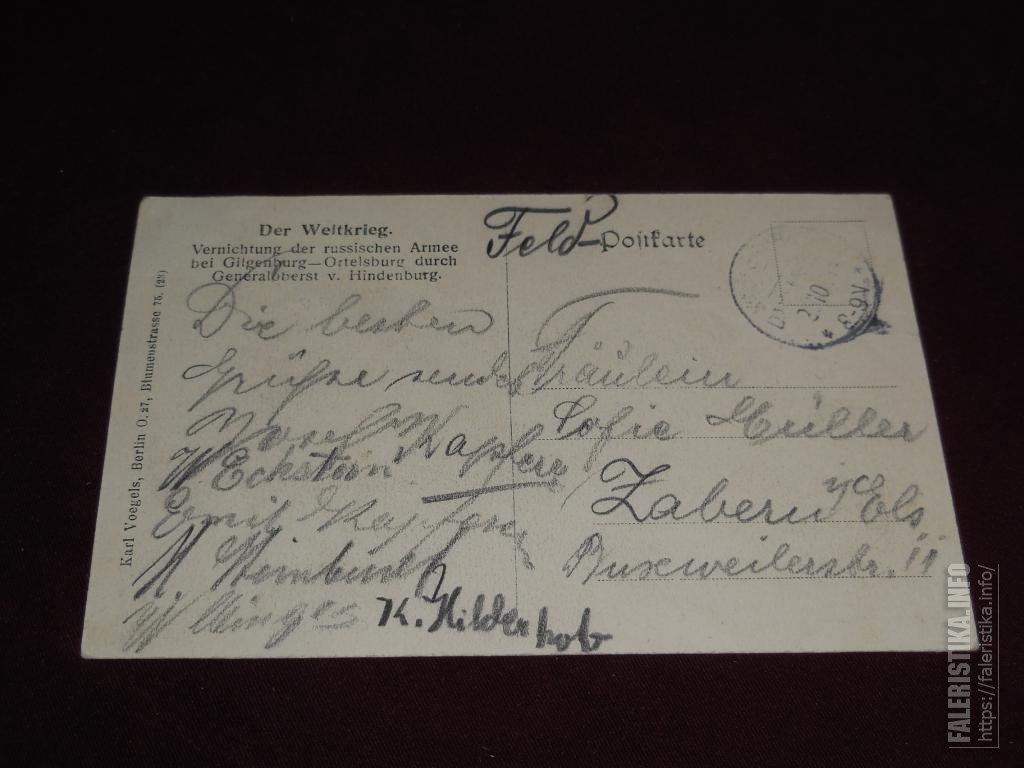 Der Weltkrieg.
Vernichtung der russischen Armee
bei Gilgenburg—Ortelsburg durch
Generaloberst v. Hindenburg.
Karl Voegels, Berlin O. 27, Blumenstrasse 75. (28)
Feld-Postkarte
8-9V
Die besten
Grüße sendet
Josef Kapferer
W Eckstein
Emil
K. Hilden
Fräulein
Sofie Müller
Zabern i/Els
Buxweilerstr. 11
FALERISTIKA.INFO
https://faleristika.info/